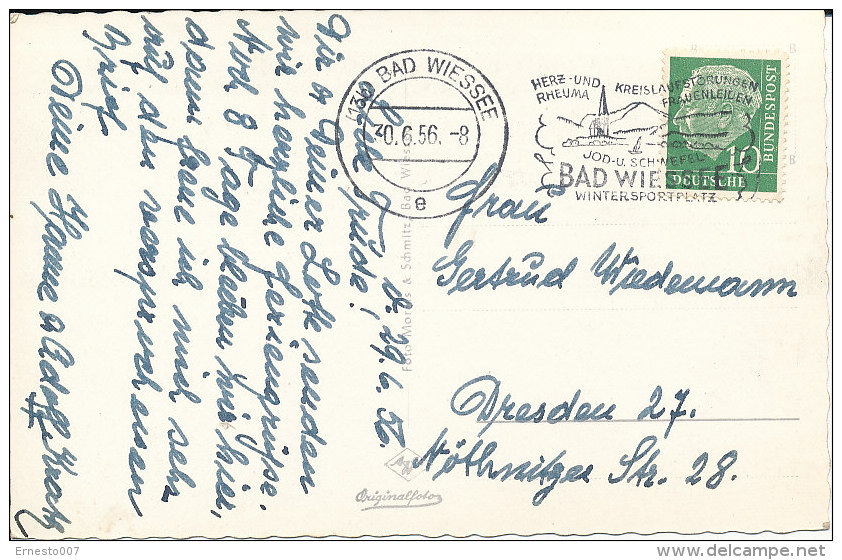 d. 29.6.56.
Liebe Trude!
Dir u. Deiner Lotte senden
wir herzliche Feriengrüsse.
Noch 8 Tage bleiben wir hier,
dann freue ich mich sehr
auf den versprochenen
Brief.
Deine Hanne u. Adolf
(13b) BAD WIESSEE
30.6.56.-8
e
HERZ- UND KREISLAUFSTÖRUNGEN
RHEUMA FRAUENLEIDEN
JOD-U. SCHWEFEL-
BAD WIESSEE
WINTERSPORTPLATZ
DEUTSCHE
BUNDESPOST
10
Frau
Gertrud Wiedemann
Dresden 27.
Nöthnitzer Str. 28.
Foto & Schmitz, Bad Wiessee
Agfa
Originalfoto
Ernesto007
www.delcampe.net